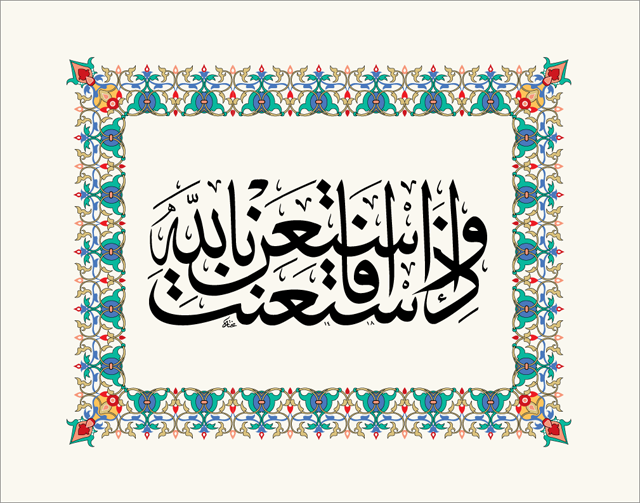 وَإِذَا اسْتَعَنْتَ فَاسْتَعِنْ بِاللَّهِ